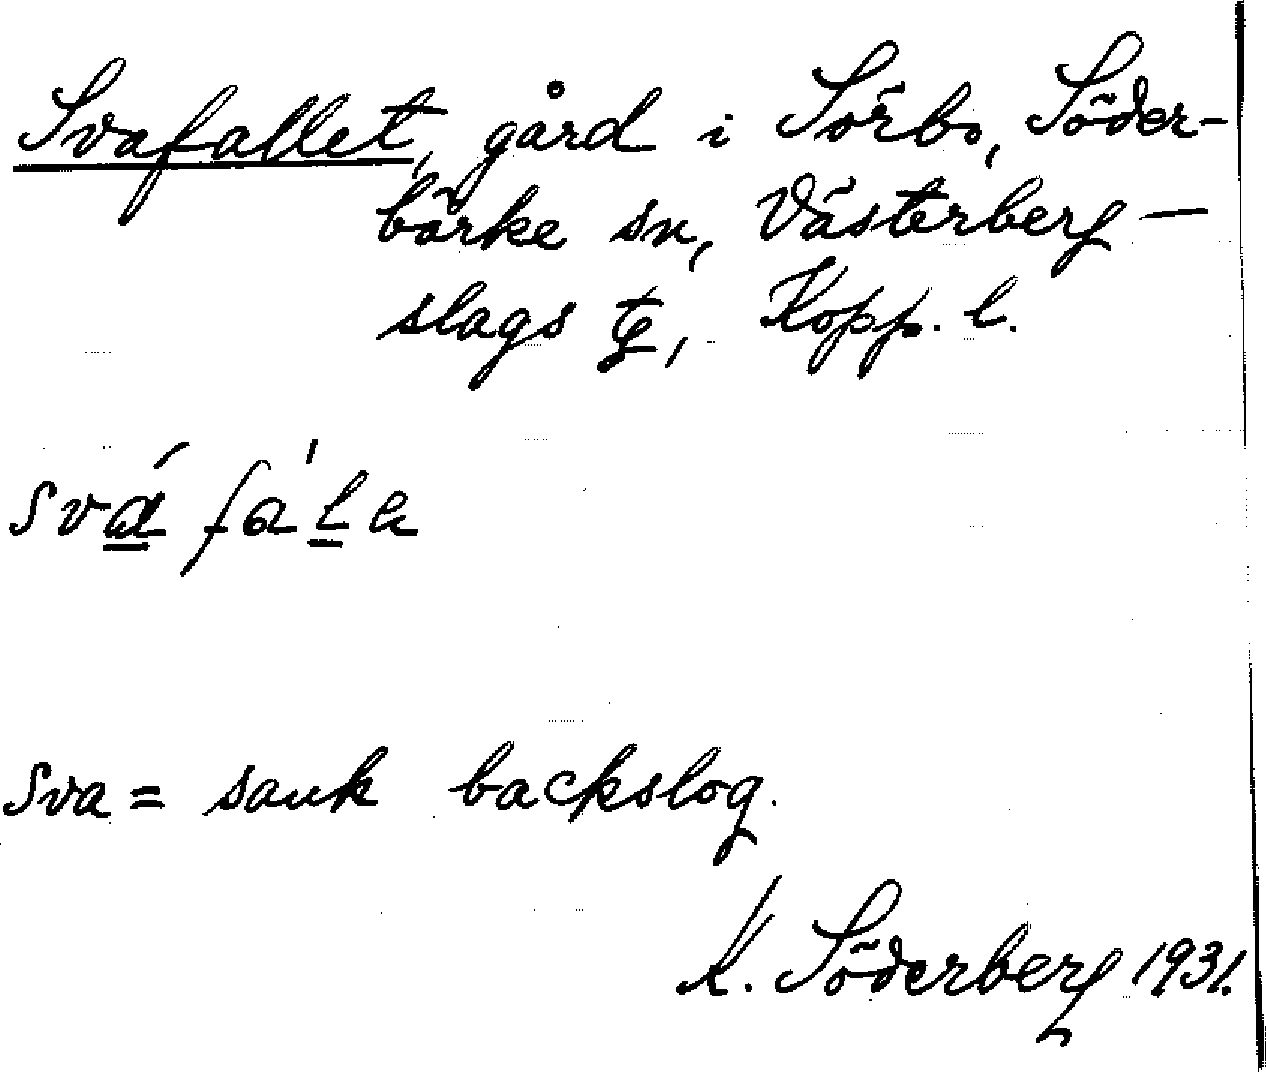 Svafallet, gård i Sörbo, Söder-
bärke sn, Västerberg-
slags tg, Kopp. l.
svá fa'la
Sva = sank backslog.
K. Söderberg 1931.